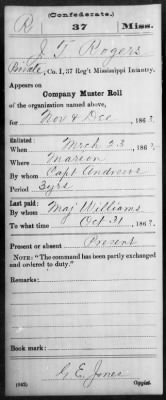 (Confederate.)
R 37 Miss.
J T Rogers
Private, Co. I, 37 Reg't Mississippi Infantry.
Appears on
Company Muster Roll
of the organization named above,
for Nov & Dec, 1863.
Enlisted:
When Mrch 23, 186
Where Marion
By whom Capt Andrews
Period 3 yrs
Last paid:
By whom Maj Williams
To what time Oct 31, 1863.
Present or absent Present
NOTE: "The command has been partly exchanged
and ordered to duty."
Remarks:
Book mark:
G E Jones
(642) Copyist.